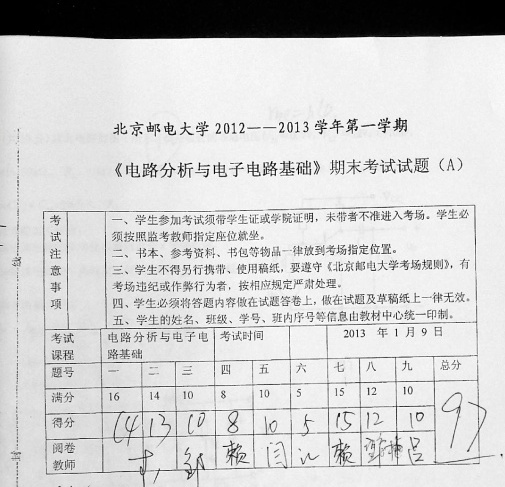 北京邮电大学2012——2013学年第一学期
《电路分析与电子电路基础》期末考试试题（A）
考试注意事项
一、学生参加考试须带学生证或学院证明，未带者不准进入考场。学生必
须按照监考教师指定座位就坐。
二、书本、参考资料、书包等物品一律放到考场指定位置。
三、学生不得另行携带、使用稿纸，要遵守《北京邮电大学考场规则》，有
考场违纪或作弊行为者，按相应规定严肃处理。
四、学生必须将答题内容做在试题答卷上，做在试题及草稿纸上一律无效。
五、学生的姓名、班级、学号、班内序号等信息由教材中心统一印制。
考试课程 电路分析与电子电路基础 考试时间 2013 年 1 月 9 日
题号 一 二 三 四 五 六 七 八 九 总分
满分 16 14 10 8 10 5 15 12 10
得分 14 13 10 8 10 5 15 12 10 97
阅卷教师 邹 赖 闫 赖 吕